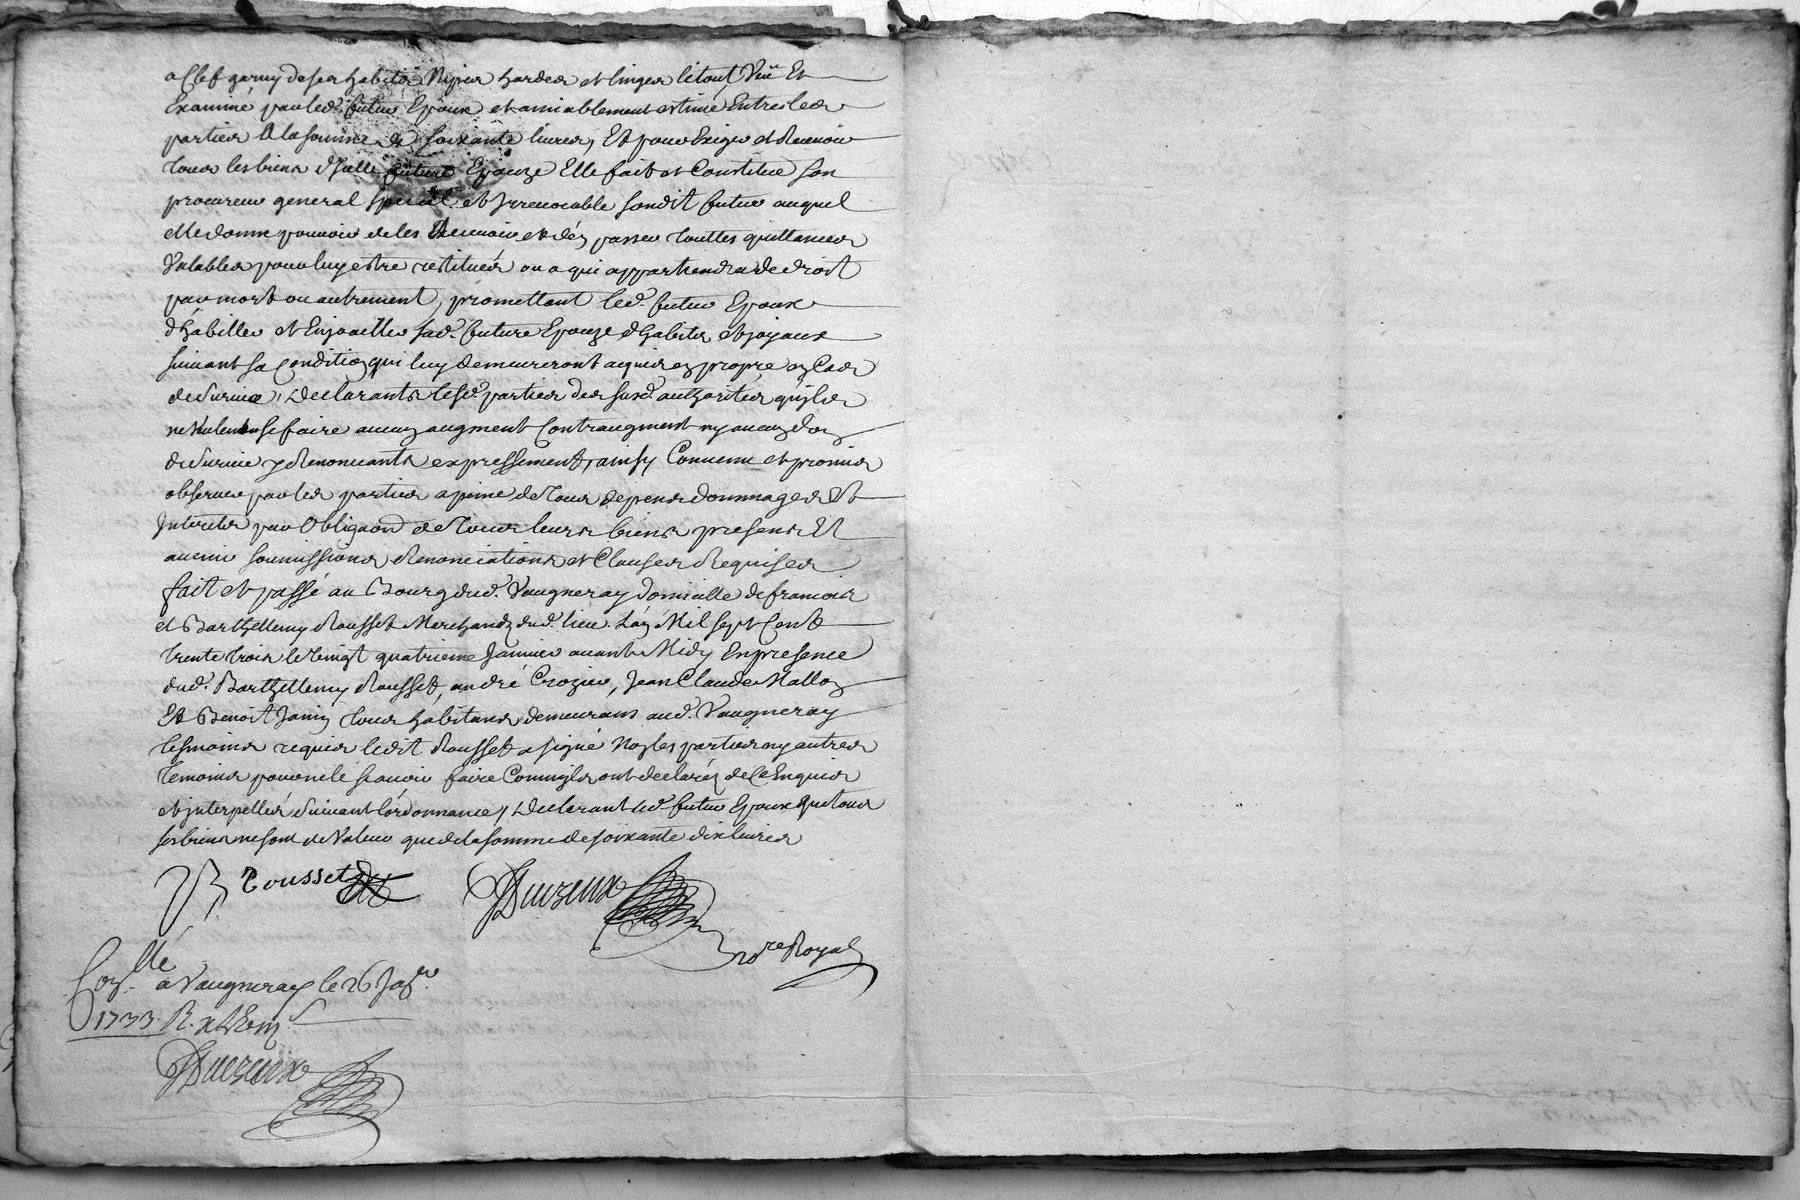 a Clef garny de ses habits Nipes hardes et linges le tout Veu Et
Examiné par led. futur Epoux et amiablement estimé Entre les
parties A la somme de soixante livres, Et pour Exiger et Recevoir
tous les biens d'Icelle future Epouze Elle fait et Constitue son
procureur general special et Irrevocable sondit futur auquel
elle donne pouvoir de les Recevoir et d'en passer touttes quittances
Valables pour luy estre restitués ou a qui appartiendra de droit
par mort ou autrement, promettant led. futur Epoux
d'habiller et Enjoailler sad. future Epouze d'habits et joyaux
suivant sa Condition qui luy demeureront acquis en propre en Cas
de Survie, Declarants lesd. parties des susd. authorités qu'ils
ne Veulent se faire aucun augment Contraugment ny aucun don
de Survie y Renonceants expressement, ainsy Convenu et promis
observer par les parties a peine de tous depens dommages Et
Interets par Obligaon de tous leurs biens presens Et
avenir soumissions Renonciations et Clauses Requises
fait et passé au Bourg dud. Vaugneray domicille de francois
et Barthellemy Rousset Merchands dud. lieu L'an Mil sept Cent
trente trois le Vingt quatrieme Janvier avant Midy En presence
dud. Barthellemy Rousset, andré Crozier, Jean Claude Mallon
Et Benoit Janin tous habitans demeurans aud. Vaugneray
tesmoins requis ledit Rousset a signé Non les parties ny autres
temoins pour ne le scavoir faire Comm'ils ont declarés de Ce Enquis
et interpellés Suivant l'ordonnance, Declarant led. futur Epoux que tous
ses biens ne sont de Valeur que de la somme de soixante dix livres
B Rousset
nore Royal
Conllé a Vaugneray le 26 Janer
1733. R.